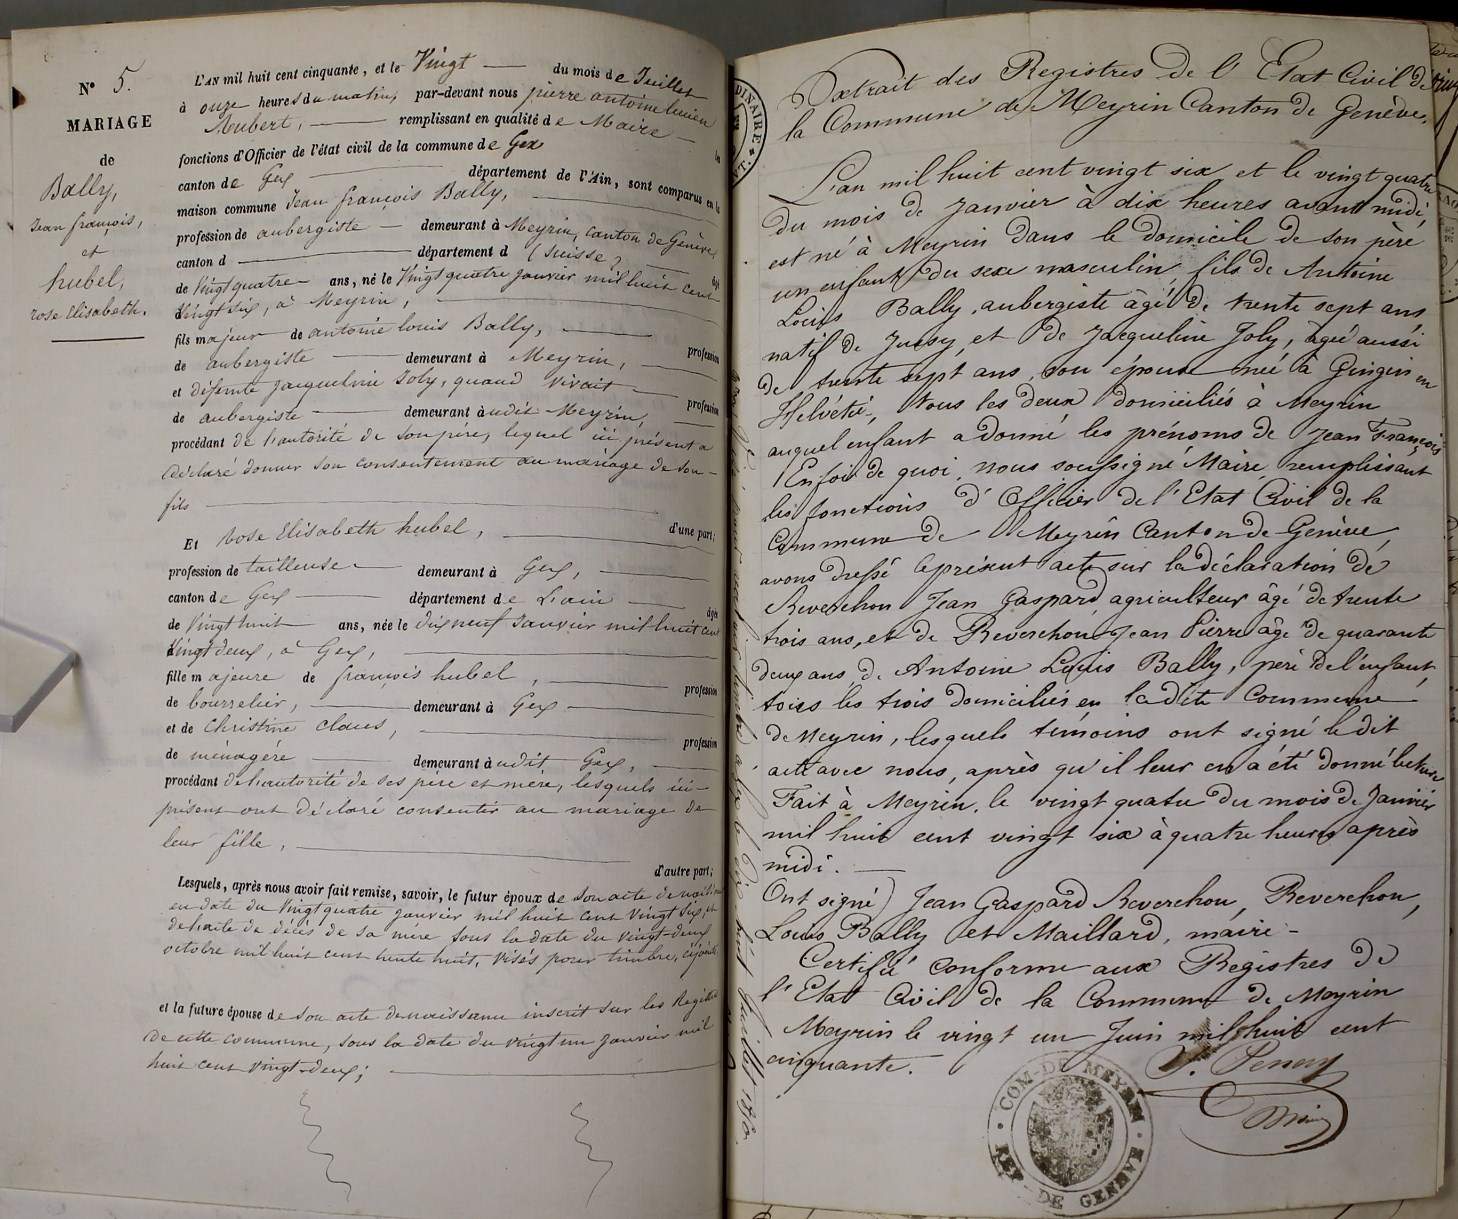 N° 5.
MARIAGE
de
Bally,
Jean françois,
et
hubel,
rose Elisabeth.
L'AN mil huit cent cinquante, et le Vingt du mois de Juillet
à onze heures du matin, par-devant nous pierre antoine lucien
Aubert, remplissant en qualité de Maire les
fonctions d'Officier de l'état civil de la commune de Gex
canton de Gex département de l'Ain, sont comparus en la
maison commune Jean françois Bally,
profession de aubergiste demeurant à Meyrin, canton de Genève
canton d département d (Suisse)
de Vingt quatre ans, né le Vingt quatre janvier mil huit cent
Vingt six, à Meyrin,
fils majeur de antoine louis Bally, profession
de aubergiste demeurant à Meyrin,
et défunte Jacqueline Joly, quand vivait profession
de aubergiste demeurant à udit Meyrin,
procédant de l'autorité de son père, lequel ici présent a
déclaré donner son consentement au mariage de son
fils
d'une part;
Et rose Elisabeth hubel,
profession de tailleuse demeurant à Gex,
canton de Gex département de L'ain âgée
de Vingt huit ans, née le dix neuf Janvier mil huit cent
Vingt deux, à Gex,
fille majeure de françois hubel, profession
de bourrelier, demeurant à Gex
et de Christine Claus, profession
de ménagère demeurant à udit Gex,
procédant de l'autorité de ses père et mère, lesquels ici
présent ont déclaré consentir au mariage de
leur fille,
d'autre part;
Lesquels, après nous avoir fait remise, savoir, le futur époux de son acte de naissance
en date du Vingt quatre janvier mil huit cent vingt six, et
de l'acte de décès de sa mère sous la date du vingt-deux
octobre mil huit cent trente huit, visés pour timbre, ci joints
et la future épouse de son acte de naissance inscrit sur les Registres
de cette commune, sous la date du vingt un janvier mil
huit cent vingt-deux;
Extrait des Registres de l'Etat Civil de
la Commune de Meyrin Canton de Genève.
L'an mil huit cent vingt six et le vingt quatre
du mois de Janvier à dix heures avant midi,
est né à Meyrin dans le domicile de son père
un enfant du sexe masculin fils de Antoine
Louis Bally, aubergiste âgé de trente sept ans
natif de Jussy, et de Jacqueline Joly, agée aussi
de trente sept ans, son épouse née à Gingin en
Helvétie, tous les deux domiciliés à Meyrin
auquel enfant a donné les prénoms de Jean François
En foi de quoi, nous soussigné Maire, remplissant
les fonctions d'Officier de l'Etat Civil de la
Commune de Meyrin Canton de Genève,
avons dressé le présent acte sur la déclaration de
Reverchon Jean Gaspard agriculteur âgé de trente
trois ans, et de Reverchon Jean Pierre âgé de quarante
deux ans, d. Antoine Louis Bally, père de l'enfant,
tous les trois domiciliés en la dite Commune
de Meyrin, lesquels témoins ont signé le dit
acte avec nous, après qu'il leur en a été donné lecture
Fait à Meyrin, le vingt quatre du mois de Janvier
mil huit cent vingt six à quatre heures après
midi.
Ont signé) Jean Gaspard Reverchon, Reverchon,
Louis Bally et Maillard, maire
Certifié conforme aux Registres de
l'Etat Civil de la Commune de Meyrin
Meyrin le vingt un Juin mil huit cent
cinquante.
COM. DE MEYRIN
REP. DE GENEVE